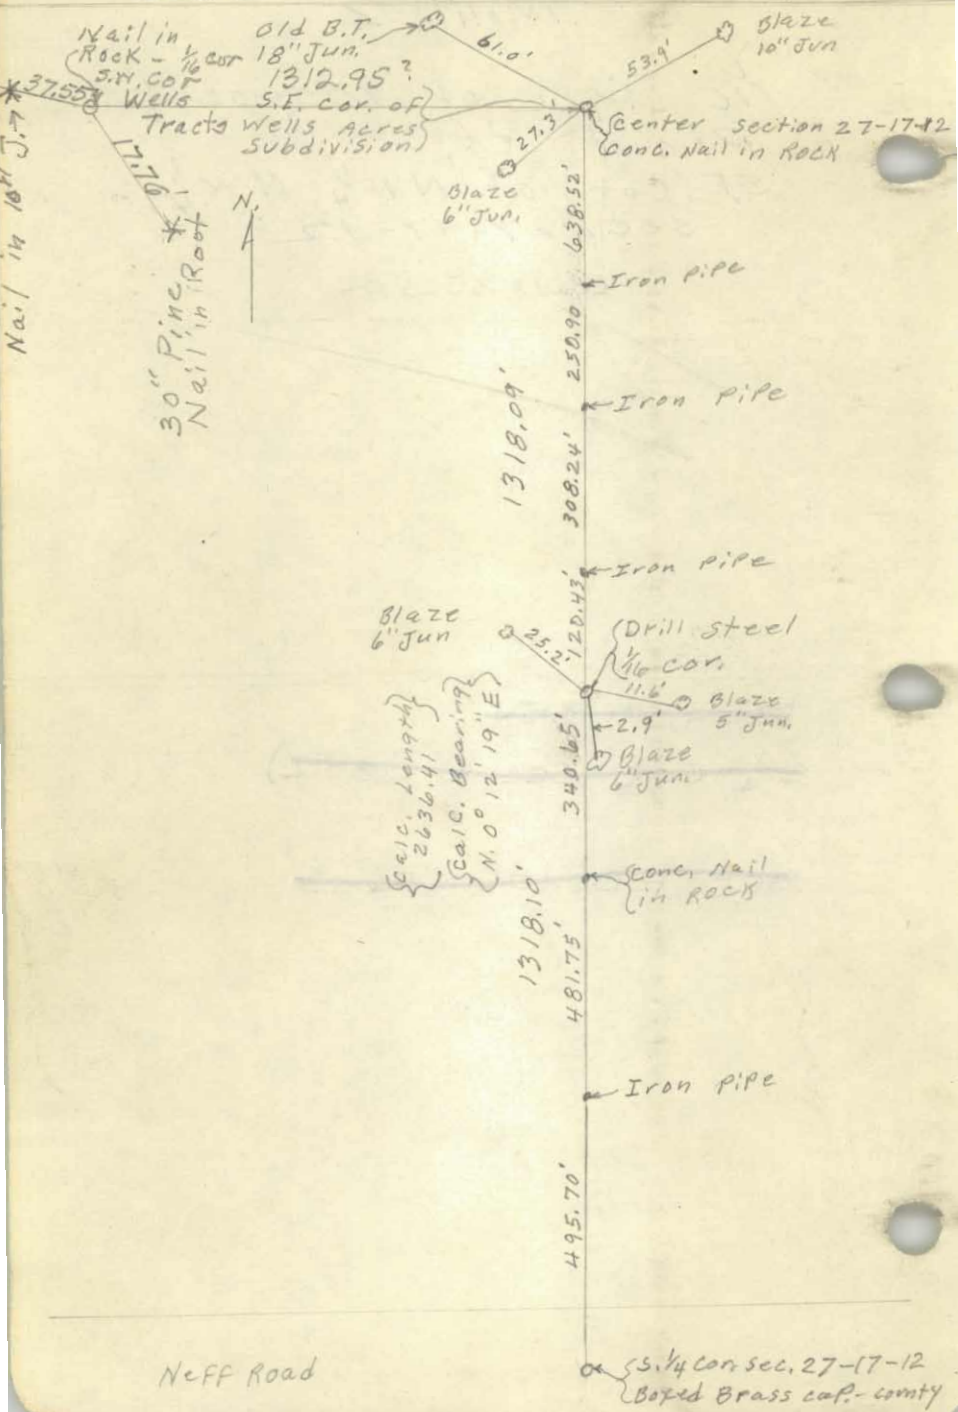 Nail in
Rock - 1/16 cor
S.W. cor
Wells
Tracts
Old B.T.
18" Jun.
1312.95'?
S.E. cor. of
Wells Acres
Subdivision
61.0'
53.9'
Blaze
10" Jun
37.55'
27.3'
Center section 27-17-12
Conc. Nail in ROCK
17.76'
Blaze
6" Jun.
Nail in 10" J.
N.
30" Pine
Nail in Root
638.52'
Iron pipe
250.90
Iron pipe
1318.09'
308.24'
Iron pipe
120.43'
Blaze
6" Jun
25.2'
Drill Steel
1/16 cor.
11.6'
Blaze
5" Jun.
2.9'
Blaze
6" Jun.
Calc. Length
2636.41
Calc. Bearing
N. 0° 12' 19" E
340.65'
Conc. Nail
in ROCK
1318.10'
481.75'
Iron pipe
495.70'
Neff Road
S. 1/4 cor. sec. 27-17-12
Boxed Brass cap. - county